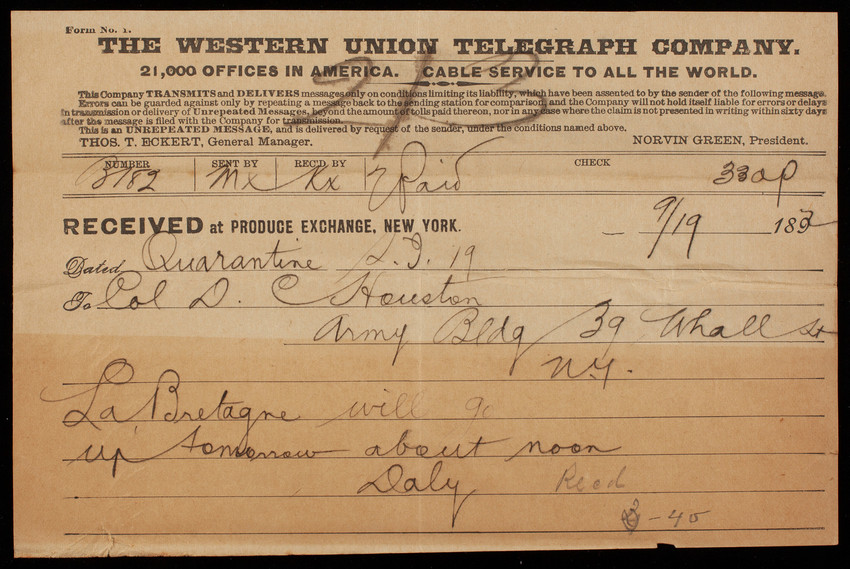 Form No. 1.
THE WESTERN UNION TELEGRAPH COMPANY.
21,000 OFFICES IN AMERICA. CABLE SERVICE TO ALL THE WORLD.
This Company TRANSMITS and DELIVERS messages only on conditions limiting its liability, which have been assented to by the sender of the following message.
Errors can be guarded against only by repeating a message back to the sending station for comparison, and the Company will not hold itself liable for errors or delays
in transmission or delivery of Unrepeated Messages, beyond the amount of tolls paid thereon, nor in any case where the claim is not presented in writing within sixty days
after the message is filed with the Company for transmission.
This is an UNREPEATED MESSAGE, and is delivered by request of the sender, under the conditions named above.
THOS. T. ECKERT, General Manager. NORVIN GREEN, President.
NUMBER SENT BY REC'D BY CHECK
B182 Mx Kx 7 Paid 330p
RECEIVED at PRODUCE EXCHANGE, NEW YORK. 9/19 1892
Dated Quarantine S.I. 19
To Col D. C Houston
Army Bldg 39 Whall St
N.Y.
La Bretagne will go
up tomorrow about noon
Daly Recd
3-45